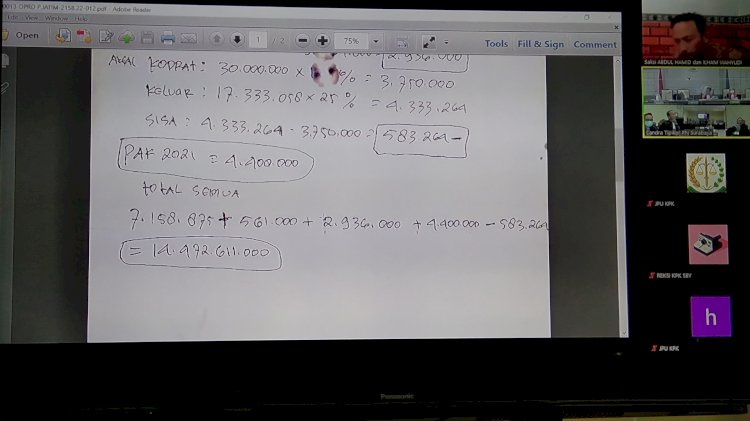 0013 OPRO PJATIM-2158.22-012.pdf - Adobe Reader
Edit View Window Help
Open
1 / 2
75%
Tools Fill & Sign Comment
2.936.000
KODRAT : 30.000.000 × % = 3.750.000
KELUAR : 17.333.058 × 25 % = 4.333.264
SISA : 4.333.264 - 3.750.000 = 583.264 -
PAK 2021 = 4.400.000
TOTAL SEMUA
7.158.875 + 561.000 + 2.936.000 + 4.400.000 - 583.264
= 14.472.611.000
Saksi ABDUL HAMID dan ILHAM WAHYUDI
Candra Tipikor PN Surabaya
JPU KPK
REKSI KPK SBY
h
JPU KPK
Panasonic